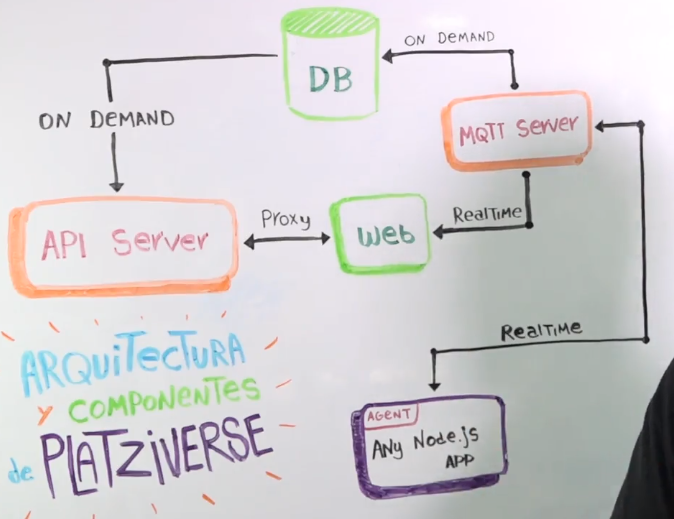 ON DEMAND
DB
MQTT Server
ON DEMAND
API Server
Proxy
Web
RealTiMe
RealTiMe
ARQuiTecTURA
y COMPONeNTES
de PLATZiVERSE
AGENT
ANy Node.js
APP